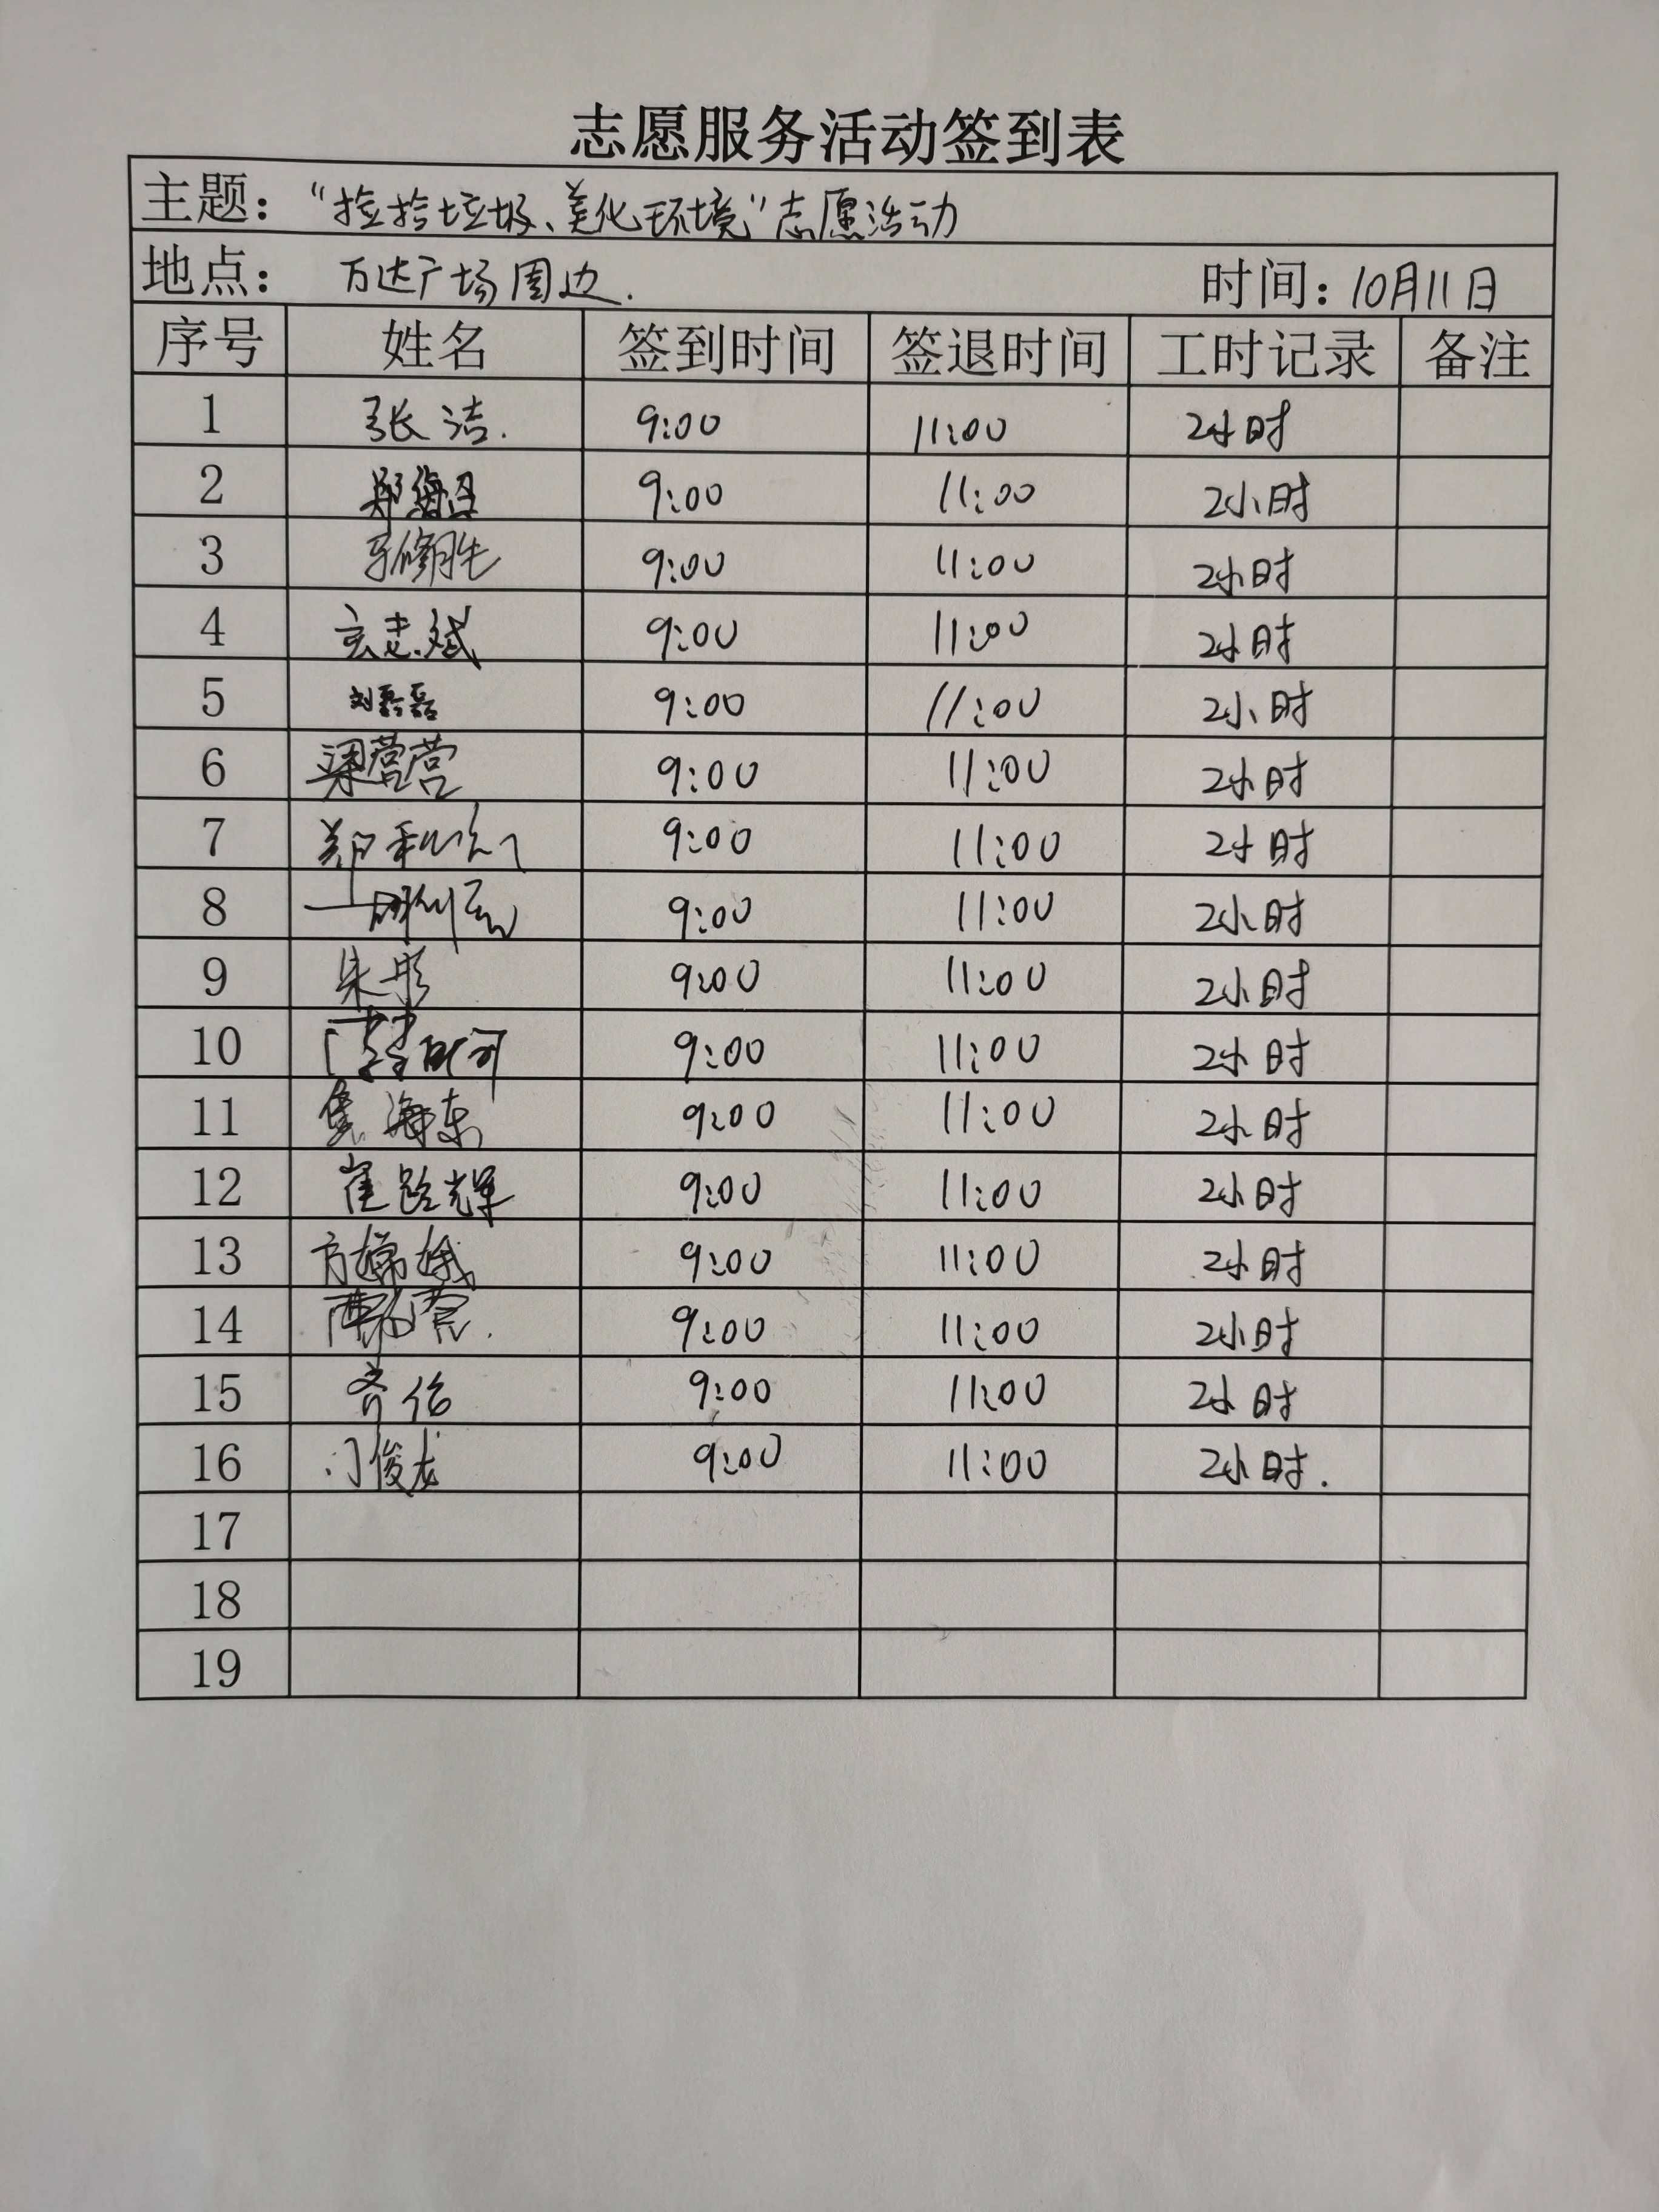 志愿服务活动签到表
主题：“捡拾垃圾、美化环境”志愿活动
地点：万达广场周边. 时间：10月11日
序号 姓名 签到时间 签退时间 工时记录 备注
1 张洁. 9:00 11:00 2小时
2 9:00 11:00 2小时
3 9:00 11:00 2小时
4 玄志斌 9:00 11:00 2小时
5 刘磊磊 9:00 11:00 2小时
6 梁营营 9:00 11:00 2小时
7 9:00 11:00 2小时
8 9:00 11:00 2小时
9 朱彤 9:00 11:00 2小时
10 9:00 11:00 2小时
11 焦海东 9:00 11:00 2小时
12 崔路辉 9:00 11:00 2小时
13 方嫦娥 9:00 11:00 2小时
14 9:00 11:00 2小时
15 齐 9:00 11:00 2小时
16 门俊龙 9:00 11:00 2小时.
17
18
19